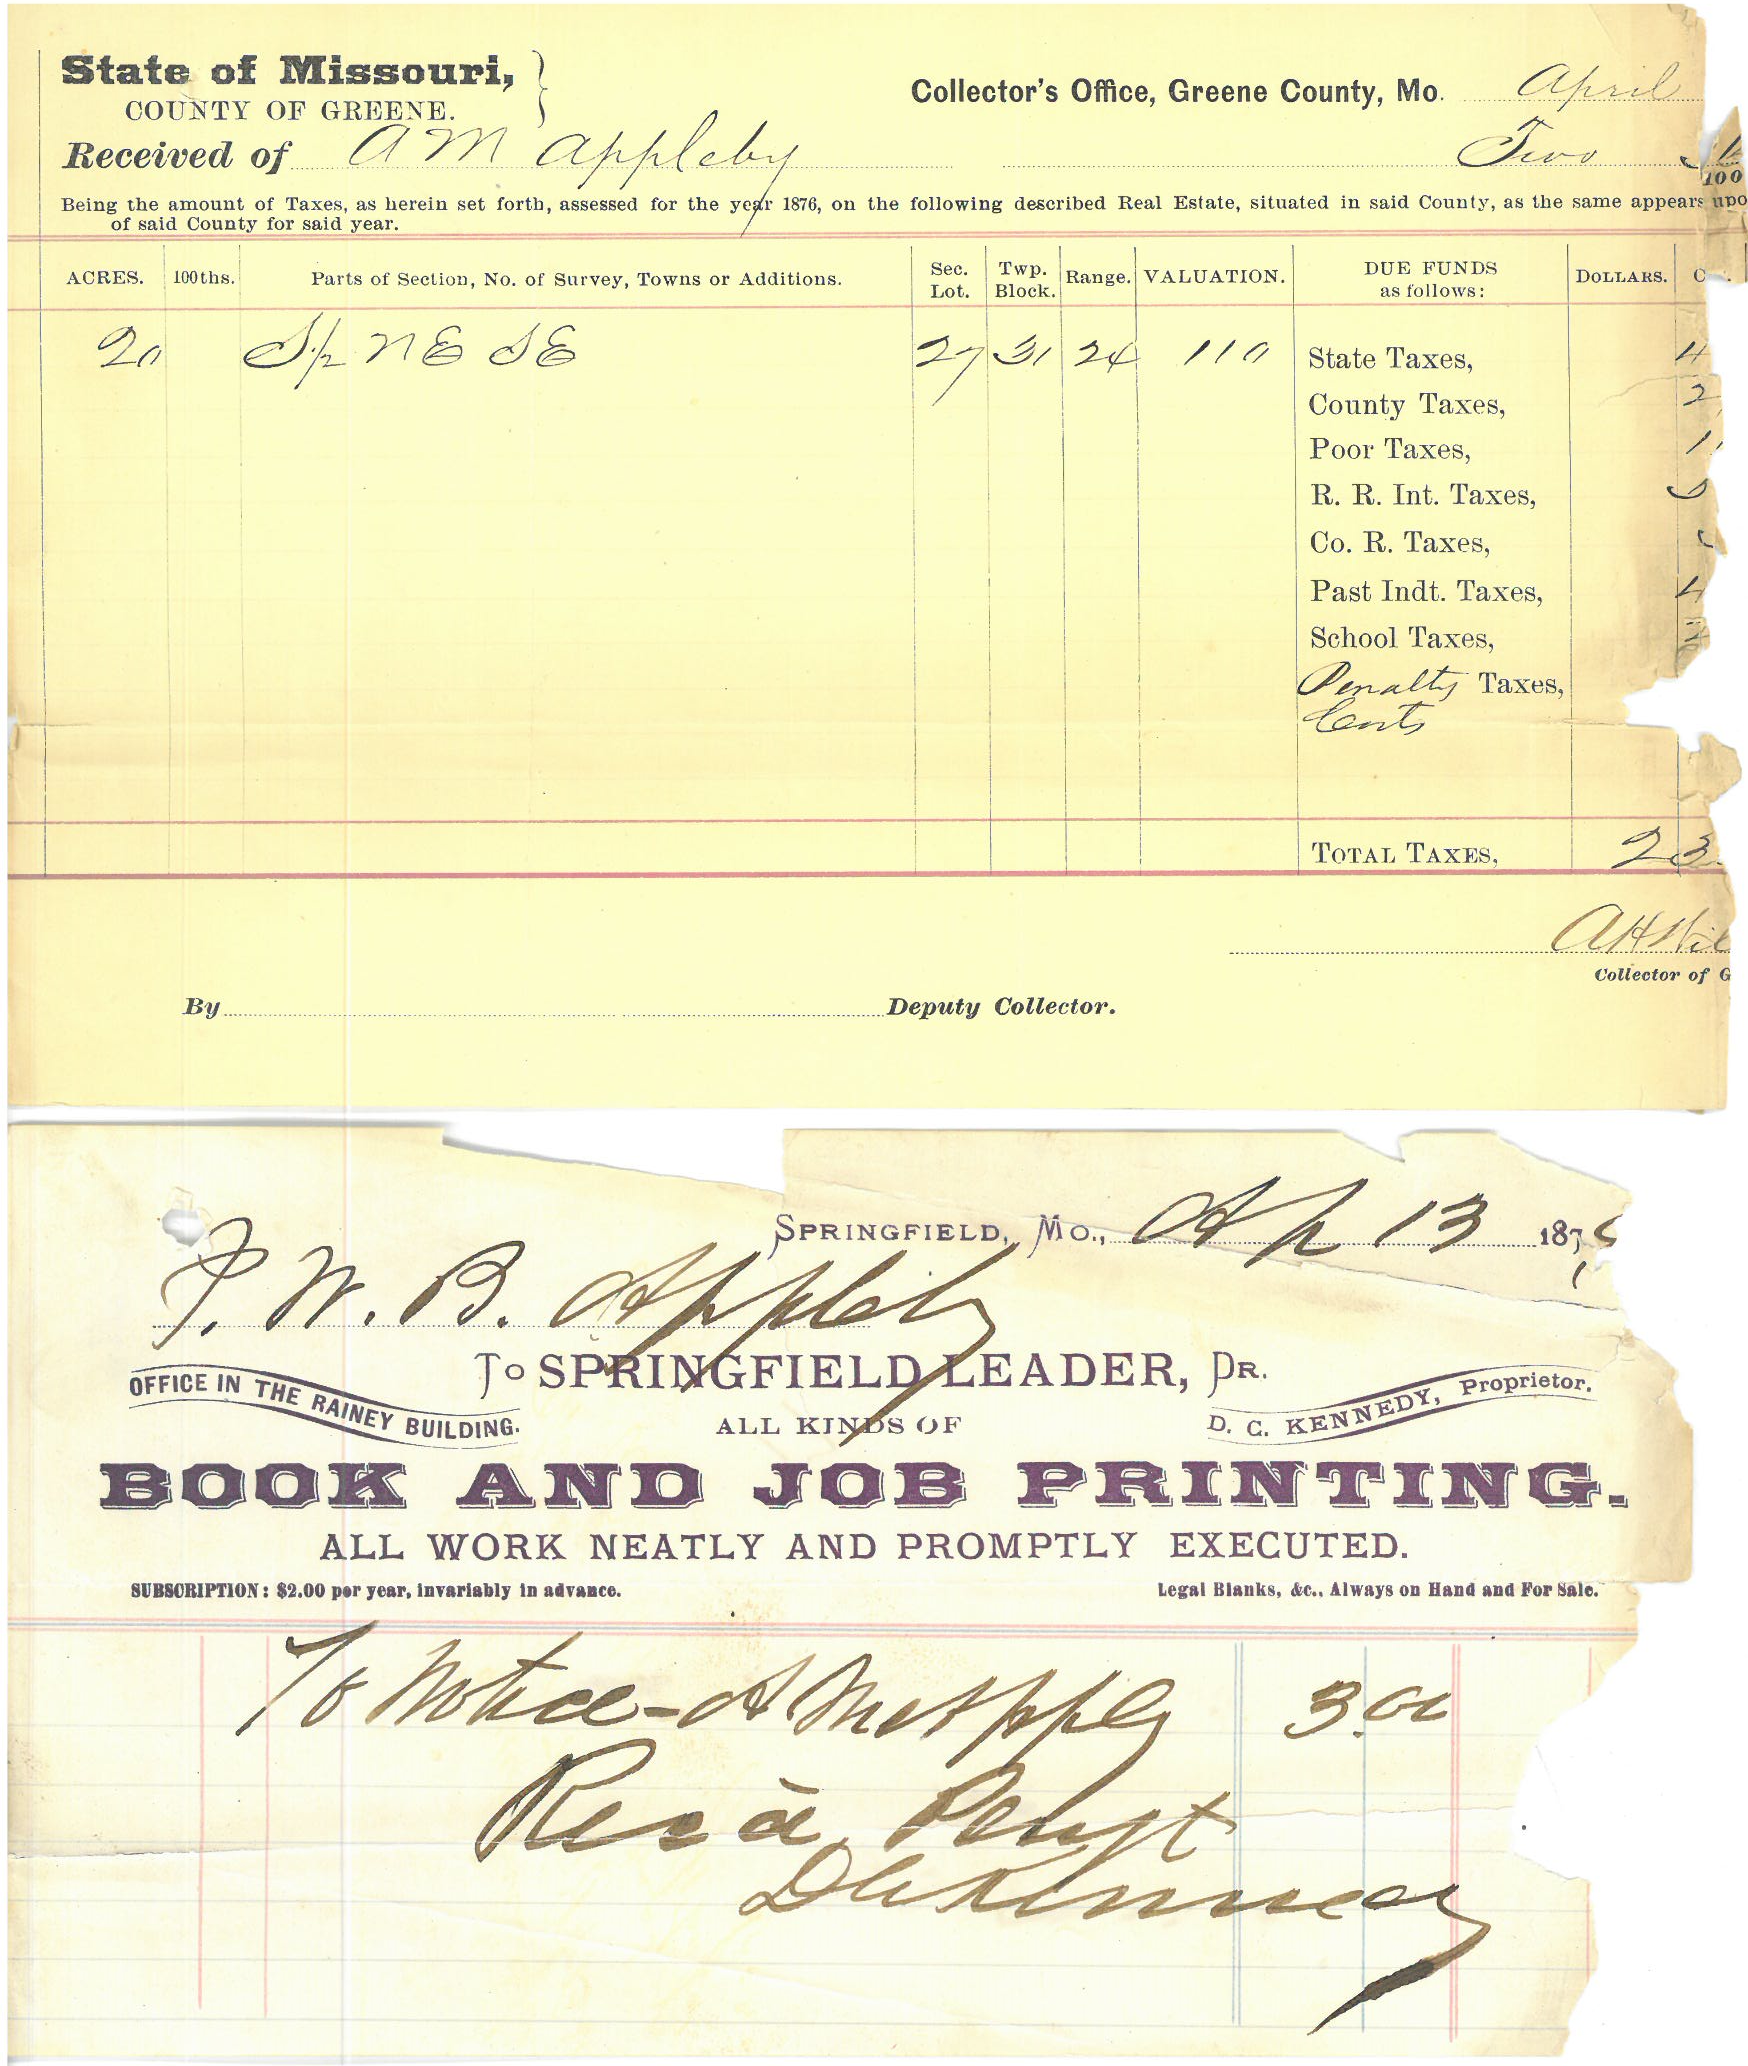 State of Missouri,
COUNTY OF GREENE.
Collector's Office, Greene County, Mo. April
Received of A M Appleby Two
100
Being the amount of Taxes, as herein set forth, assessed for the year 1876, on the following described Real Estate, situated in said County, as the same appears upo
of said County for said year.
ACRES. 100ths. Parts of Section, No. of Survey, Towns or Additions. Sec. Lot. Twp. Block. Range. VALUATION. DUE FUNDS as follows: DOLLARS. C
20 S½ NE SE 27 31 24 110 State Taxes, 4
County Taxes, 2
Poor Taxes, 1
R. R. Int. Taxes,
Co. R. Taxes,
Past Indt. Taxes, 4
School Taxes,
Penalty Taxes,
Costs
TOTAL TAXES, 2 3
A H Wil
Collector of G
By Deputy Collector.
SPRINGFIELD, MO., Ap 13 187
W. B. Appleby
To SPRINGFIELD LEADER, DR.
OFFICE IN THE RAINEY BUILDING.
D. C. KENNEDY, Proprietor.
ALL KINDS OF
BOOK AND JOB PRINTING.
ALL WORK NEATLY AND PROMPTLY EXECUTED.
SUBSCRIPTION: $2.00 per year, invariably in advance. Legal Blanks, &c., Always on Hand and For Sale.
To Notice - A. M. Apply 3.00
Rec'd Paymt
D C Kennedy